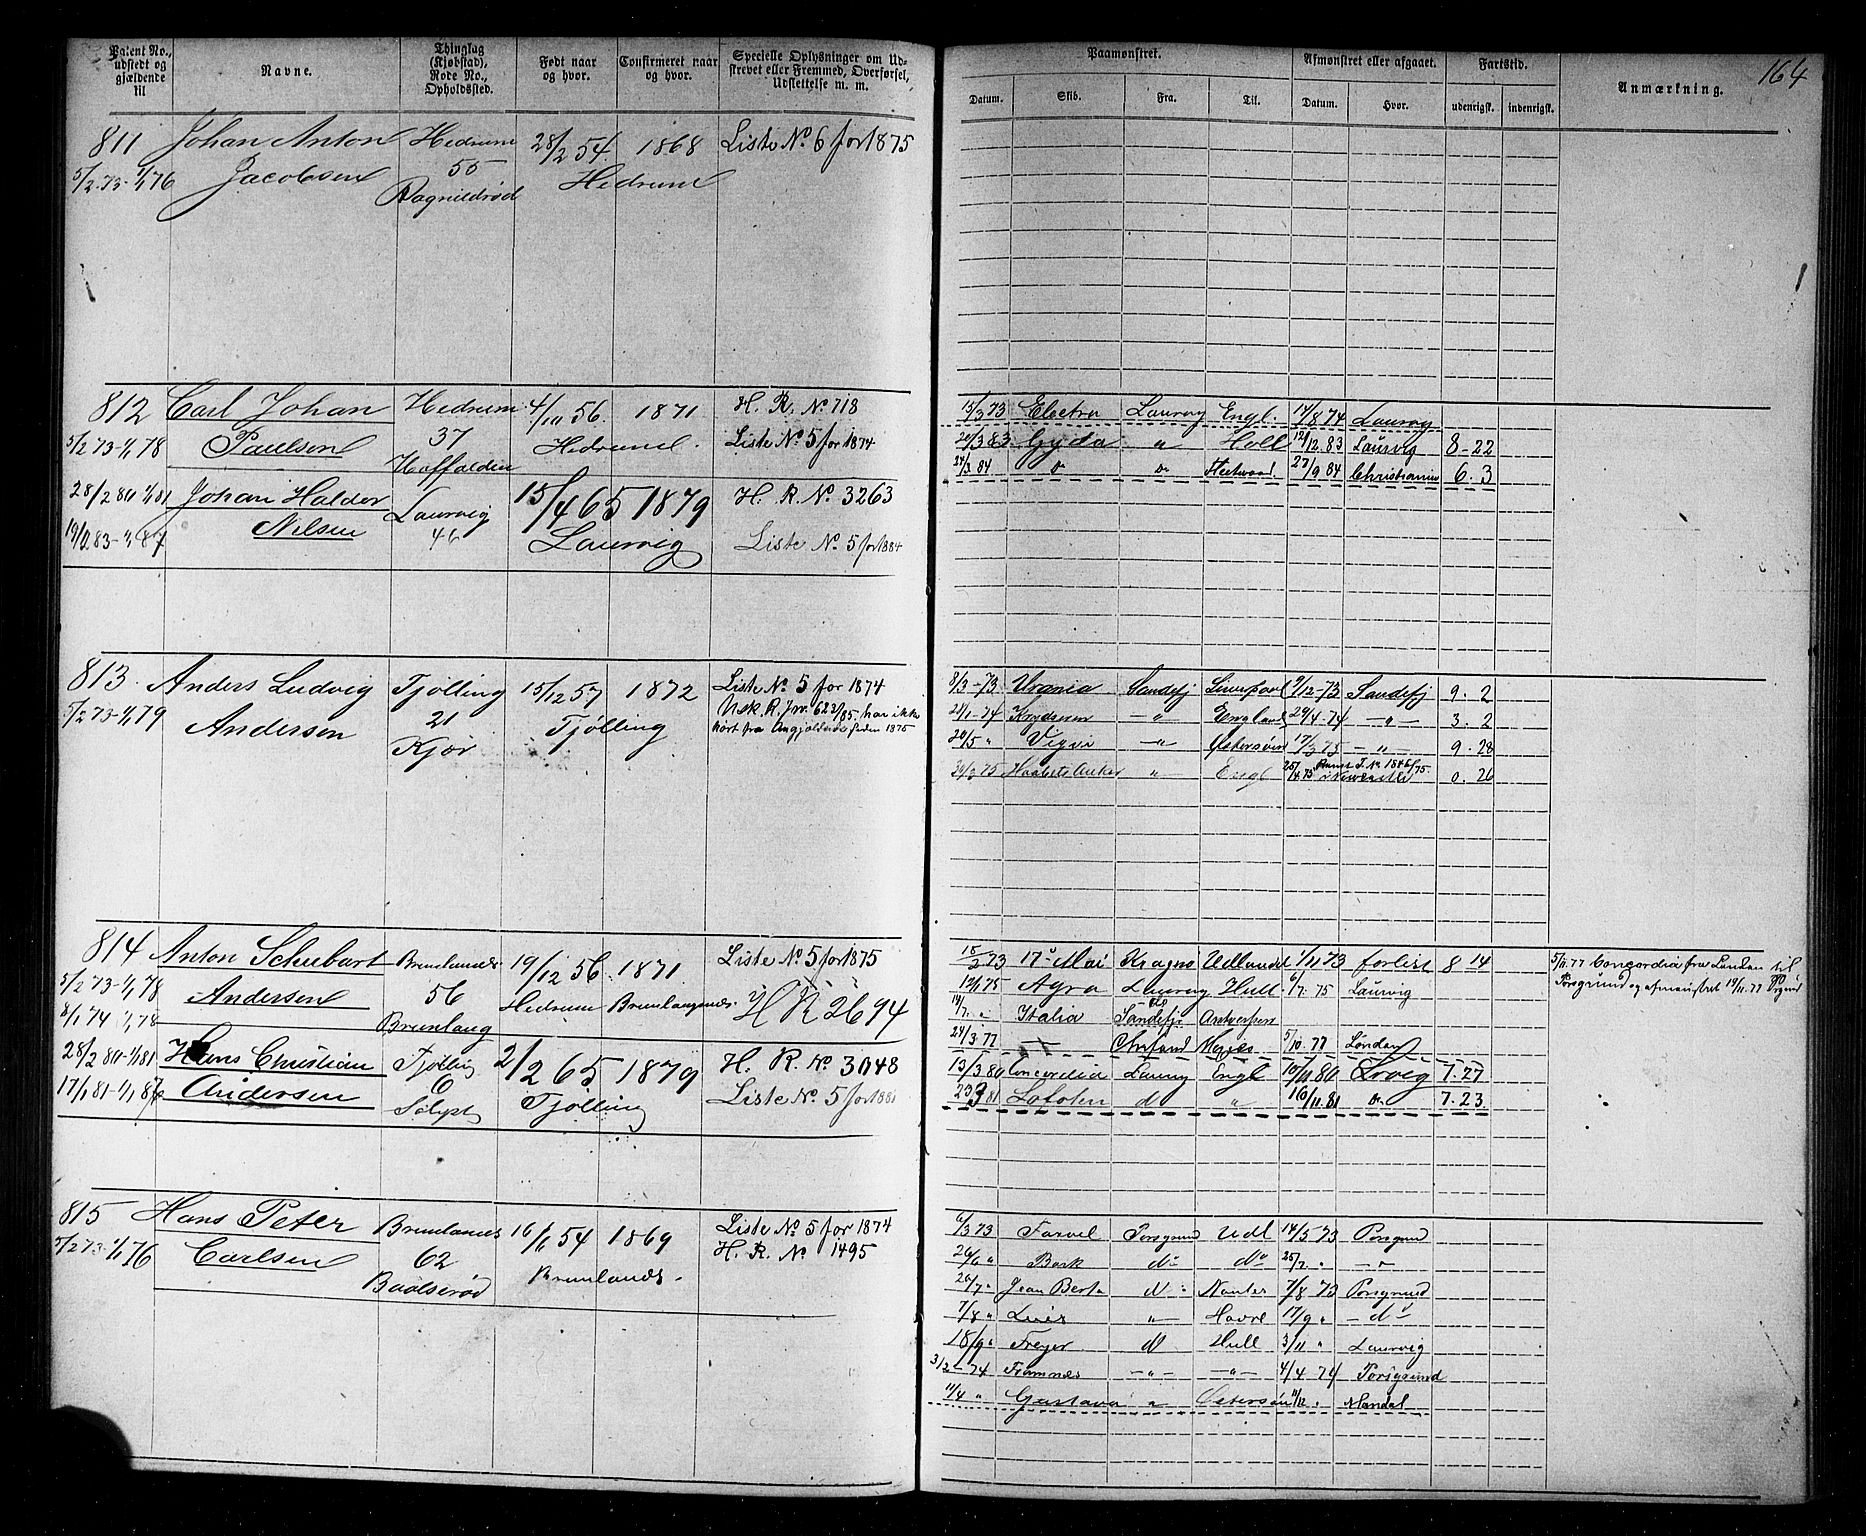 164
Patent No., udstedt og gjældende til
Navne.
Thinglag (Kjøbstad), Rode No., Opholdssted.
Født naar og hvor.
Confirmeret naar og hvor.
Specielle Oplysninger om Udskrevet eller Fremmed, Overførsel, Udslettelse m. m.
Paamønstret.
Afmønstret eller afgaaet.
Fartstid.
Anmærkning.
Datum. Skib. Fra. Til. Datum. Hvor. udenrigsk. indenrigsk.
811 Johan Anton Hedrum 28/2 54. 1868 Liste No 6 for 1875
5/2.73-1/1 76 Jacobsen 55 Hedrum
Ragnildrød
812 Carl Johan Hedrum 4/10 56. 1871 H. R. No 718
5/2 73-1/1 78 Paulsen 37 Hedrum. Liste No 5 for 1874
28/2 80-1/1 81 Johan Haldor Laurvig 15/4 65 1879 H. R. No 3263
Nilsen 46 Laurvig Liste No 5 for 1884
15/3 73 Electra Laurvig Engl. 14/8 74 Laurvig
Gyda " Holl 12/12 83 Laurvig 8-22
24/3 84 do do 27/9 84 Christiania 6.3
813. Anders Ludvig Tjølling 15/12 57 1872 Liste No 5 for 1874
5/2 73-1/1 79 Andersen 21 Tjølling har ikke
Kjør hørt fra siden 1875
8/3-73 Urania Sandefj Liverpool 9/12-73 Sandefj 9.2
-"- England 29/4-74 -"- 3.2
20/5 " -"- Østersøen 17/3 75 -"- 9.28
Haabets Anker " Engl 0.26
814 Anton Schubart Brunlanæs 19/12 56. 1871 Liste No 5 for 1875
5/2 73-1/1 78 Andersen 56 Hedrum Brunlangenæs. H R 2694
8/1 74 1/1 78 Brunlang
28/2 80-1/1 81 Hans Christian Tjølling 2/2 65 1879 H. R. No 3048
17/1 81-1/1 87 Andersen 6 Tjølling Liste No. 5 for 1881
15/2 73 17de Mai Kragrø Udlandet 1/11 73 forlist 8 14 5/11 77 Concordia fra London til
Agra Laurvig Hull 6/7. 75 Laurvig Porsgrund og afmønstret 19/11 77
Italia Sandefj Antverpen
24/3 77 5/10. 77 London
13/3 80 Concordia Laurvig Engl Lrvig 7.27
Lofoten do " 16/11.81 do 7.23
815 Hans Peter Brunlanæs 16/1 54 1869 Liste No 5 for 1874
5/2 73-1/1 76 Carlsen 62 Brunlanæs. H. R. No 1495
6/3 73 Farvel Porsgrund Udl 14/5 73 Porsgrund
26/6 " Bark do do 25/7 " -"-
26/7 " Jean Berta do Nantes 7/8 73 Porsgrund
7/8 " -"- Havre 17/9 " - do
18/9 " Freyer do Hull 3/11 " Laurvig
3/2-74 Framnæs -"- -"- 4/4 74 Porsgrund
11/4 " Gustava " Østersøen 11/12 " Mandal